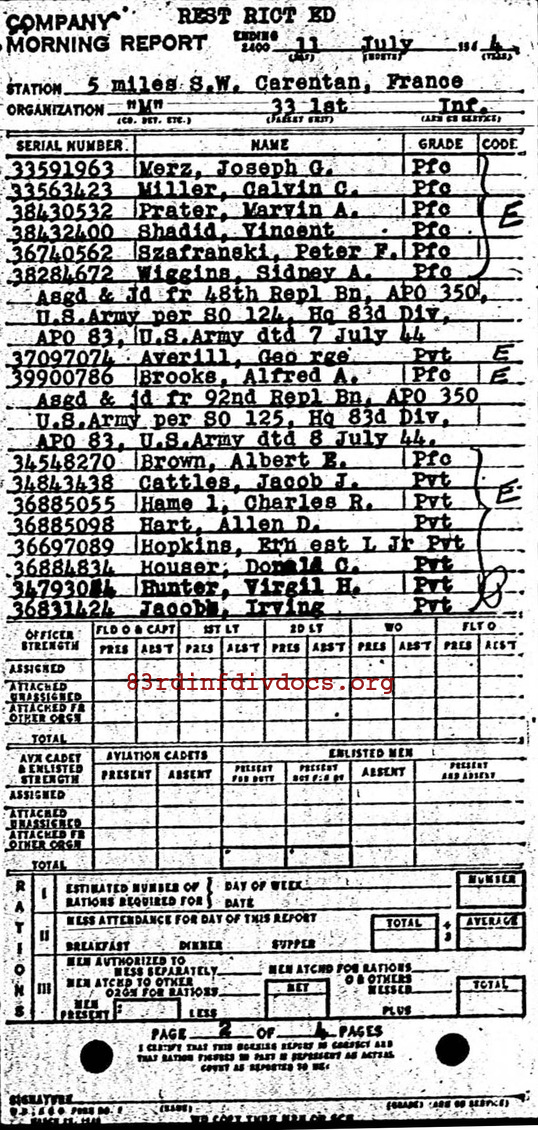 REST RICT ED
COMPANY
MORNING REPORT ENDING 2400 11 July 194 4
(DAY) (MONTH) (YEAR)
STATION 5 miles S.W. Carentan, France
ORGANIZATION "M" 33 1st Inf.
(CO. DET. ETC.) (PARENT UNIT) (ARM OR SERVICE)
SERIAL NUMBER NAME GRADE CODE
33591963 Merz, Joseph G. Pfc
33563423 Miller, Calvin C. Pfc
38430532 Prater, Marvin A. Pfc E
38432400 Shadid, Vincent Pfc
36740562 Szafranski, Peter F. Pfc
38284672 Wiggins, Sidney A. Pfc
Asgd & Jd fr 48th Repl Bn, APO 350,
U.S.Army per SO 124, Hq 83d Div,
APO 83, U.S.Army dtd 7 July 44
37097074 Averill, Geo rge Pvt E
39900786 Brooks, Alfred A. Pfc E
Asgd & jd fr 92nd Repl Bn, APO 350
U.S.Army per SO 125, Hq 83d Div,
APO 83, U.S.Army dtd 8 July 44.
34548270 Brown, Albert E. Pfc
34843438 Cattles, Jacob J. Pvt
36885055 Hame l, Charles R. Pvt E
36885098 Hart, Allen D. Pvt
36697089 Hopkins, Ern est L Jr Pvt
36884834 Houser, Donald C. Pvt
Hunter, Virgil H. Pvt
36831424 Jacobs, Irving Pvt
OFFICER STRENGTH FLD O & CAPT 1ST LT 2D LT WO FLT O
PRES ABS'T PRES ABS'T PRES ABS'T PRES ABS'T PRES ABS'T
ASSIGNED
ATTACHED UNASSIGNED
83rdinfdivdocs.org
ATTACHED FR OTHER ORGN
TOTAL
AVN CADET & ENLISTED STRENGTH AVIATION CADETS ENLISTED MEN
PRESENT ABSENT PRESENT FOR DUTY PRESENT NOT FOR DY ABSENT PRESENT AND ABSENT
ASSIGNED
ATTACHED UNASSIGNED
ATTACHED FR OTHER ORGN
TOTAL
RATIONS
I ESTIMATED NUMBER OF RATIONS REQUIRED FOR { DAY OF WEEK DATE NUMBER
II MESS ATTENDANCE FOR DAY OF THIS REPORT TOTAL ÷ 3 AVERAGE
BREAKFAST DINNER SUPPER
III MEN AUTHORIZED TO MESS SEPARATELY MEN ATCHD FOR RATIONS
MEN ATCHD TO OTHER ORGN FOR RATIONS NET O & OTHERS MESSED TOTAL
MEN PRESENT LESS PLUS
PAGE 2 OF 4 PAGES
I CERTIFY THAT THIS MORNING REPORT IS CORRECT AND
THAT RATION FIGURES IN PART III REPRESENT AN ACTUAL
COUNT AS REPORTED TO ME:
SIGNATURE
(NAME) (GRADE) (ARM OR SERVICE)